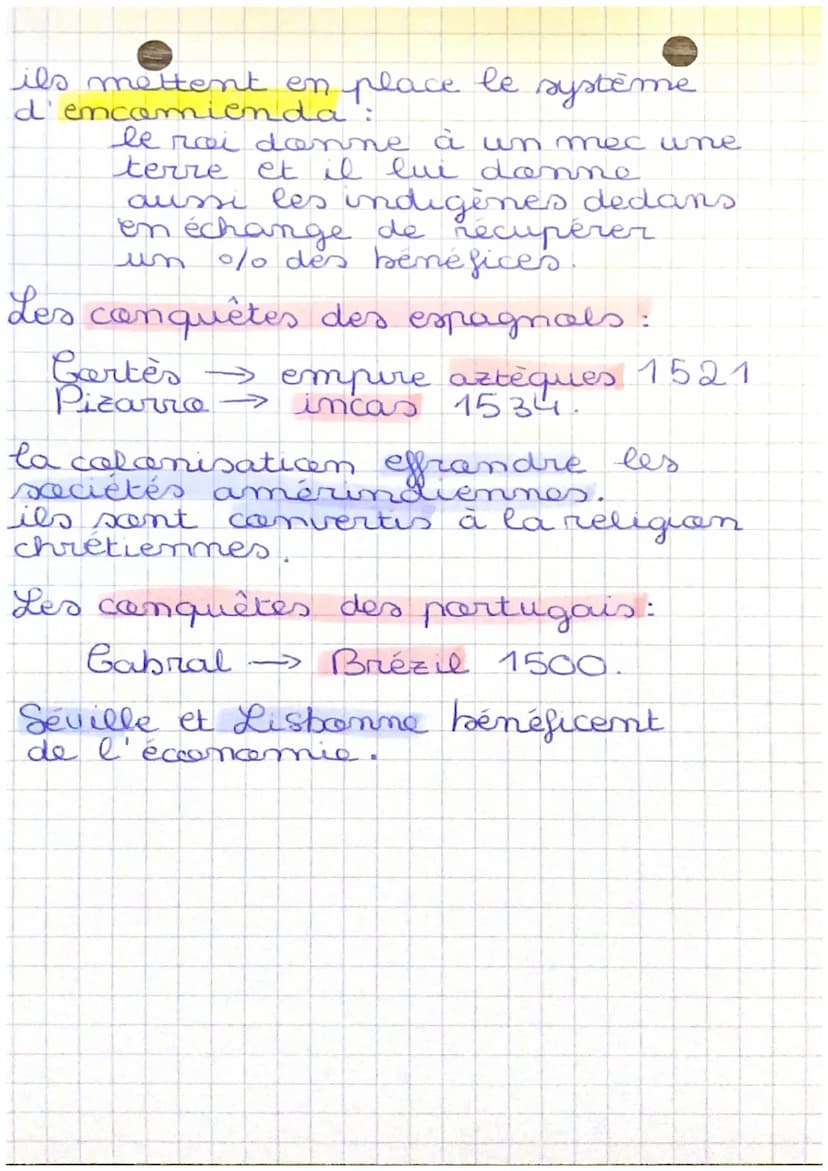 ils mettent en place le système
d'encomienda :
le roi donne à un mec une
terre et il lui donne
aussi les indigènes dedans
en échange de récupérer
un % des bénéfices.
Les conquêtes des espagnols :
Cortès → empire aztèques 1521
Pizarro → incas 1534.
la colonisation effrondre les
sociétés amérindiennes.
ils sont convertis à la religion
chrétiennes.
Les conquêtes des portugais :
Cabral → Brézil 1500.
Séville et Lisbonne bénéficent
de l'écconomie.